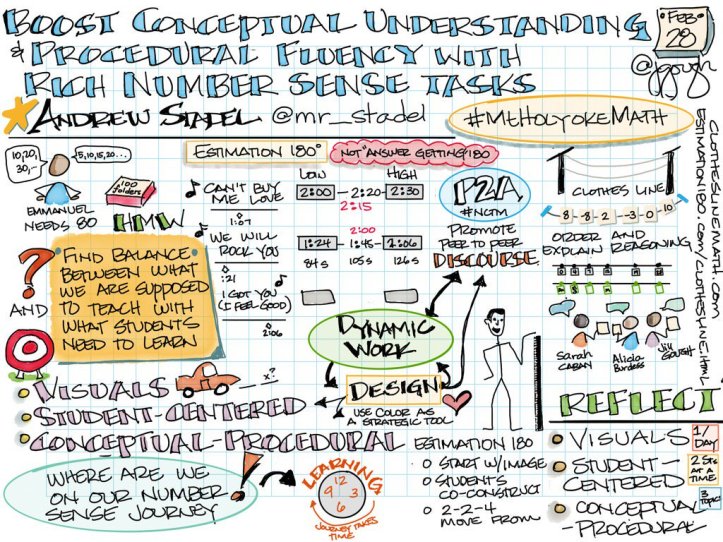 BOOST CONCEPTUAL UNDERSTANDING
& PROCEDURAL FLUENCY WITH
RICH NUMBER SENSE TASKS
FEB
@jgough
ANDREW STADEL @mr_stadel
#MTHOLYOKEMATH
CLOTHESLINEMATH.COM
ESTIMATION180.COM/CLOTHESLINE.HTML
10, 20,
30, –
5, 10, 15, 20...
EMMANUEL
NEEDS 80
100
folders
HMW
?
AND
FIND BALANCE
BETWEEN WHAT
WE ARE SUPPOSED
TO TEACH WITH
WHAT STUDENTS
NEED TO LEARN
ESTIMATION 180°
NOT "ANSWER GETTING" 180
CAN'T BUY
ME LOVE
1:07
WE WILL
ROCK YOU
:21
I GOT YOU
(I FEEL GOOD)
2:06
LOW HIGH
2:00 – 2:20 – 2:30
2:15
2:00
1:24 – 1:45 – 2:06
84s 105s 126s
P2A
#NCTM
PROMOTE
PEER TO PEER
DISCOURSE
CLOTHES LINE
-8 -8 -2 -3 -0 -10
ORDER AND
EXPLAIN REASONING
Sarah
CABAN
Alicia
Burdess
Jill
GOUGH
DYNAMIC
WORK
DESIGN
USE COLOR AS
A STRATEGIC TOOL
VISUALS
x?
STUDENT-CENTERED
CONCEPTUAL-PROCEDURAL
WHERE ARE WE
ON OUR NUMBER
SENSE JOURNEY
!
LEARNING
12
9 3
6
JOURNEY TAKES
TIME
ESTIMATION 180
START W/IMAGE
STUDENTS
CO-CONSTRUCT
2-2-4
MOVE FROM
REFLECT
VISUALS
1/
DAY
STUDENT-
CENTERED
2 Sts
AT A
TIME
CONCEPTUAL
-PROCEDURAL
3
Topic